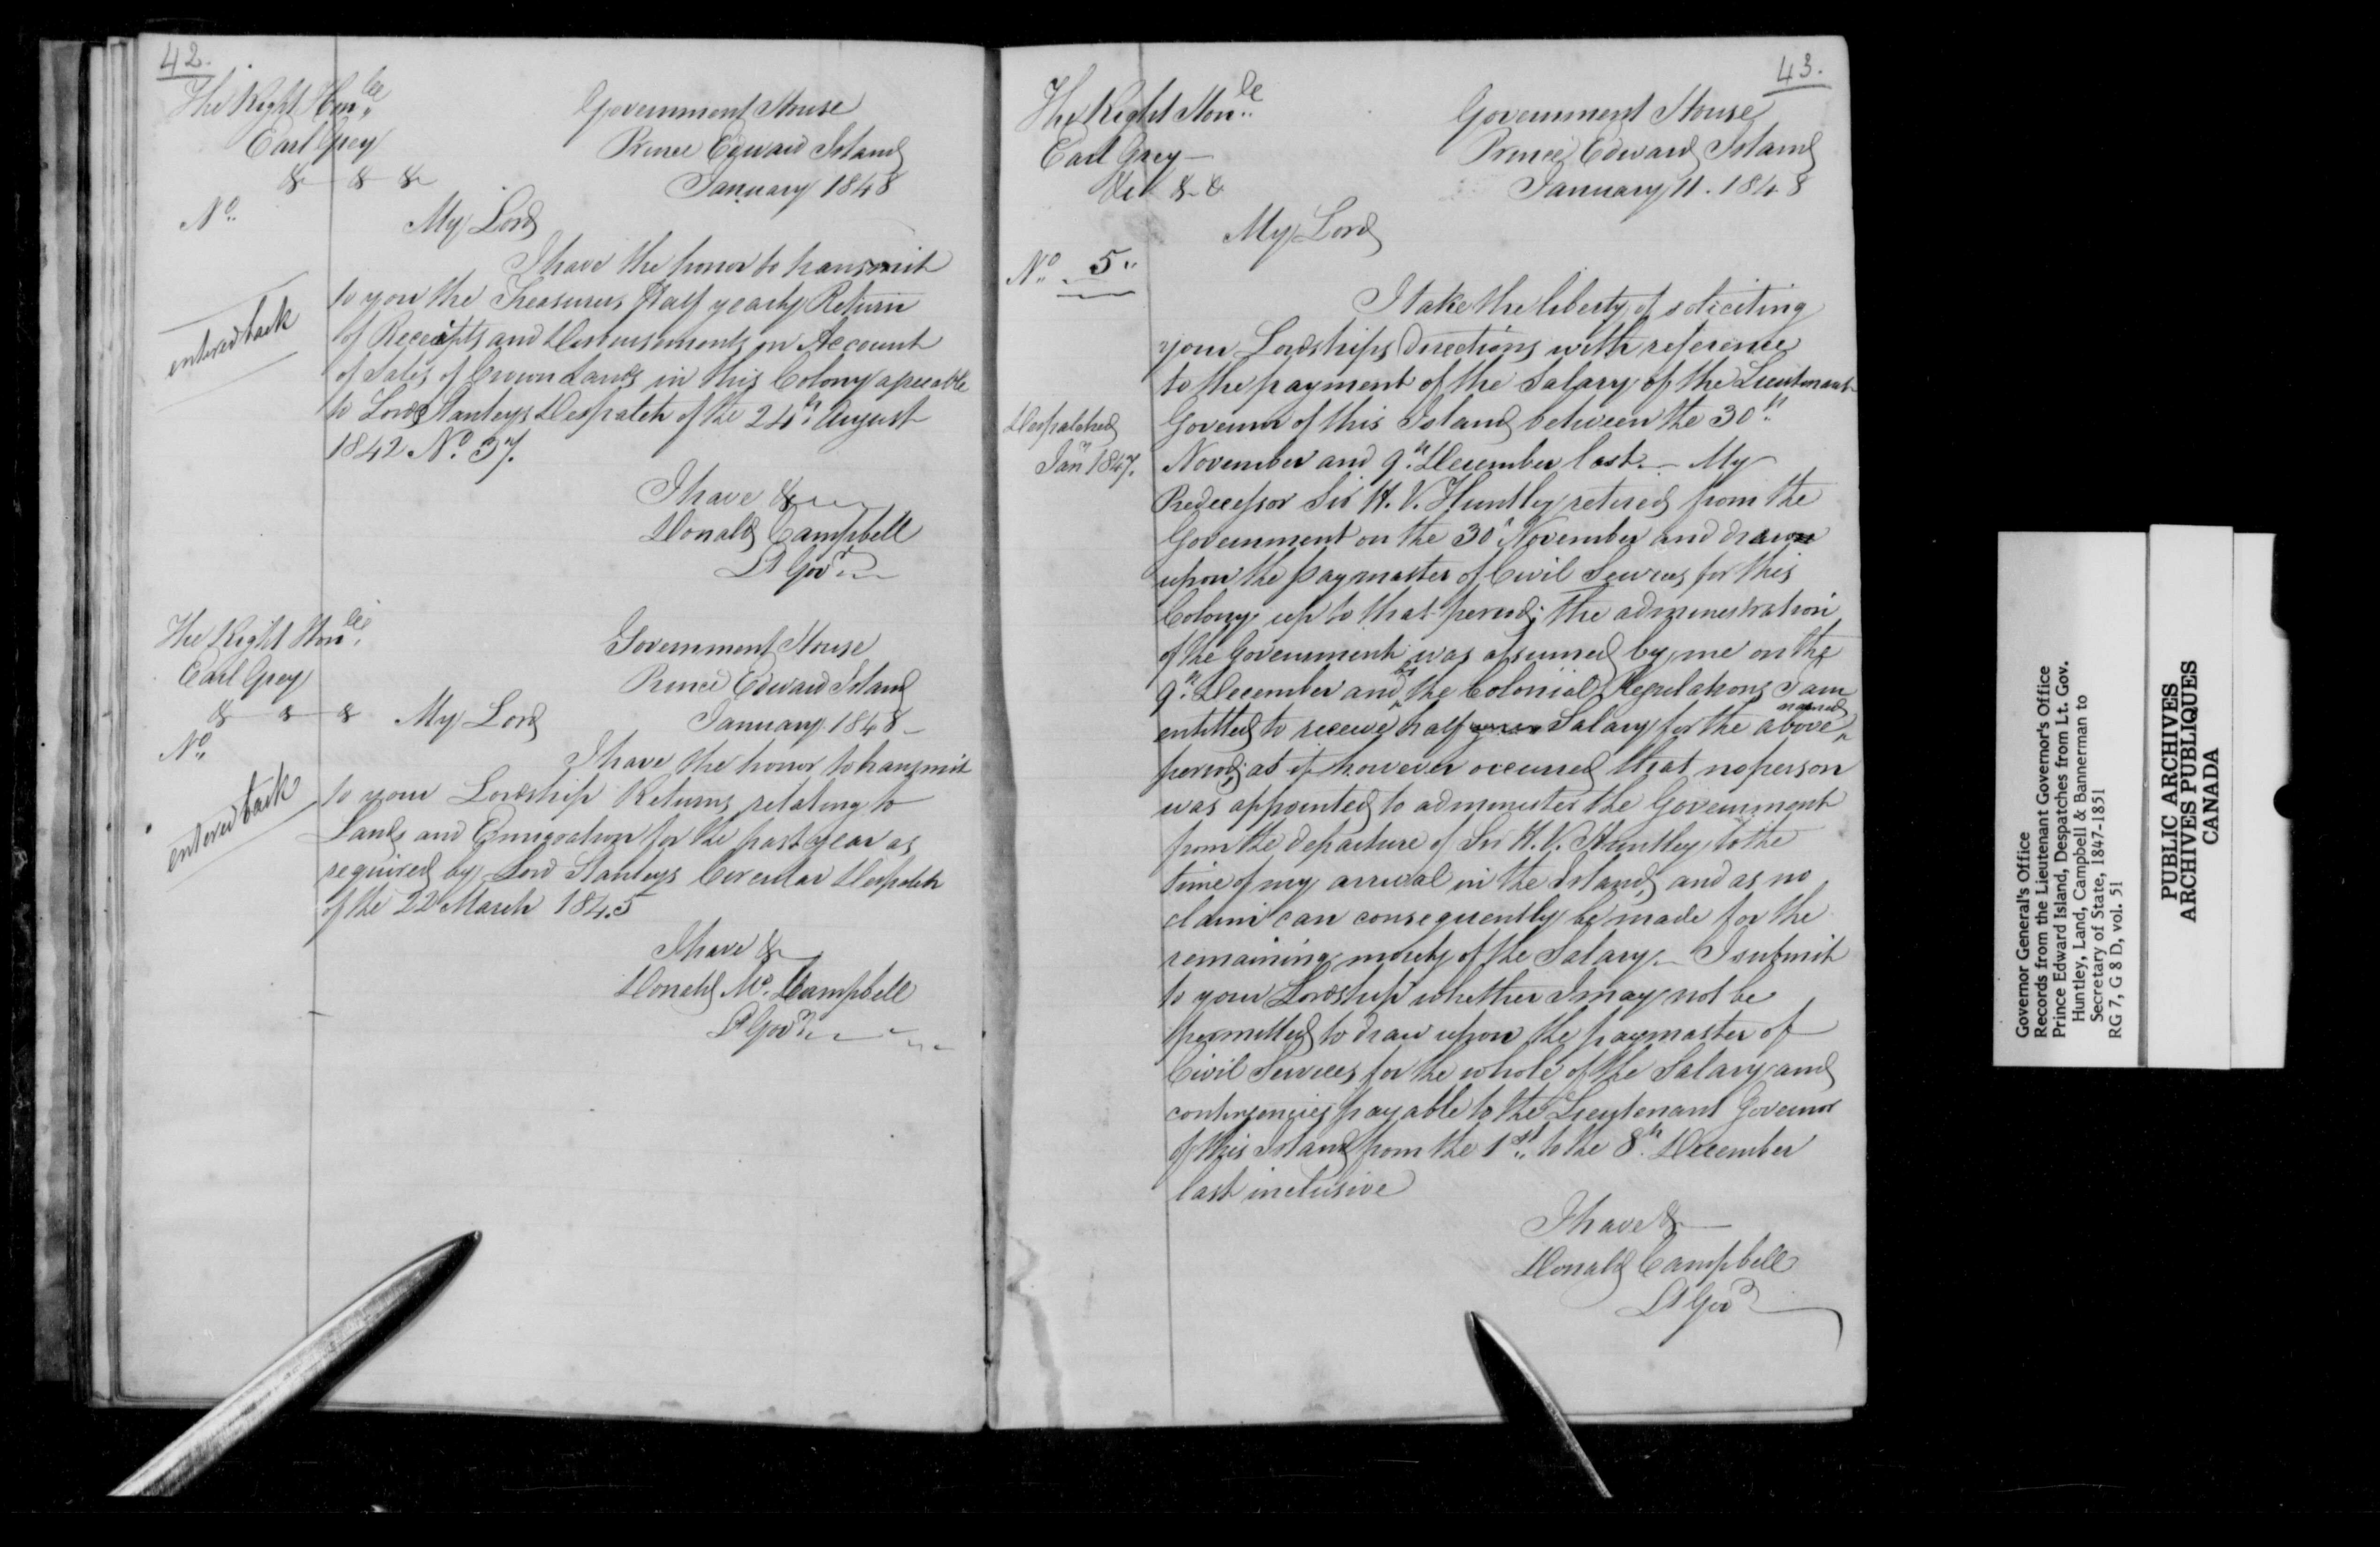 42.
The Right Honble
Earl Grey
& & &
No.
Government House
Prince Edward Island
January 1848
My Lord
I have the honor to transmit
to you the Treasurers Half yearly Return
of Receipts and Disbursements on Account
of Sales of Crown Lands in this Colony agreeable
to Lord Stanleys Despatch of the 24th August
1842 No. 37.
entered back
I have &
Donald Campbell
Lt Govr
The Right Honble
Earl Grey
& & &
No.
Government House
Prince Edward Island
January 1848
My Lord
I have the honor to transmit
to your Lordship Returns relating to
Lands and Emigration for the past year as
required by Lord Stanleys Circular Despatch
of the 22 March 1845
entered back
I have &
Donald Campbell
Lt Govr
43.
The Right Honble
Earl Grey
&c & &
Government House
Prince Edward Island
January 11. 1848
My Lord
No. 5
I take the liberty of soliciting
your Lordships directions with reference
to the payment of the Salary of the Lieutenant
Governor of this Island between the 30th
November and 9th December last. My
Predecessor Sir H. V. Huntley retired from the
Government on the 30th November and drawn
upon the paymaster of Civil Services for this
Colony up to that period; the administration
of the Government was assumed by me on the
9th December and by the Colonial Regulations I am
entitled to receive half Salary for the above named
period; as it however occurred that no person
was appointed to administer the Government
from the departure of Sir H. V. Huntley to the
time of my arrival in the Island, and as no
claim can consequently be made for the
remaining moiety of the Salary. I submit
to your Lordship whether I may not be
permitted to draw upon the paymaster of
Civil Services for the whole of the Salary and
contingencies payable to the Lieutenant Governor
of this Island from the 1st to the 8th December
last inclusive
Despatched
Jany 1847.
I have &
Donald Campbell
Lt Govr
Governor General's Office
Records from the Lieutenant Governor's Office
Prince Edward Island, Despatches from Lt. Gov.
Huntley, Land, Campbell & Bannerman to
Secretary of State, 1847-1851
RG 7, G 8 D, vol. 51
PUBLIC ARCHIVES
ARCHIVES PUBLIQUES
CANADA